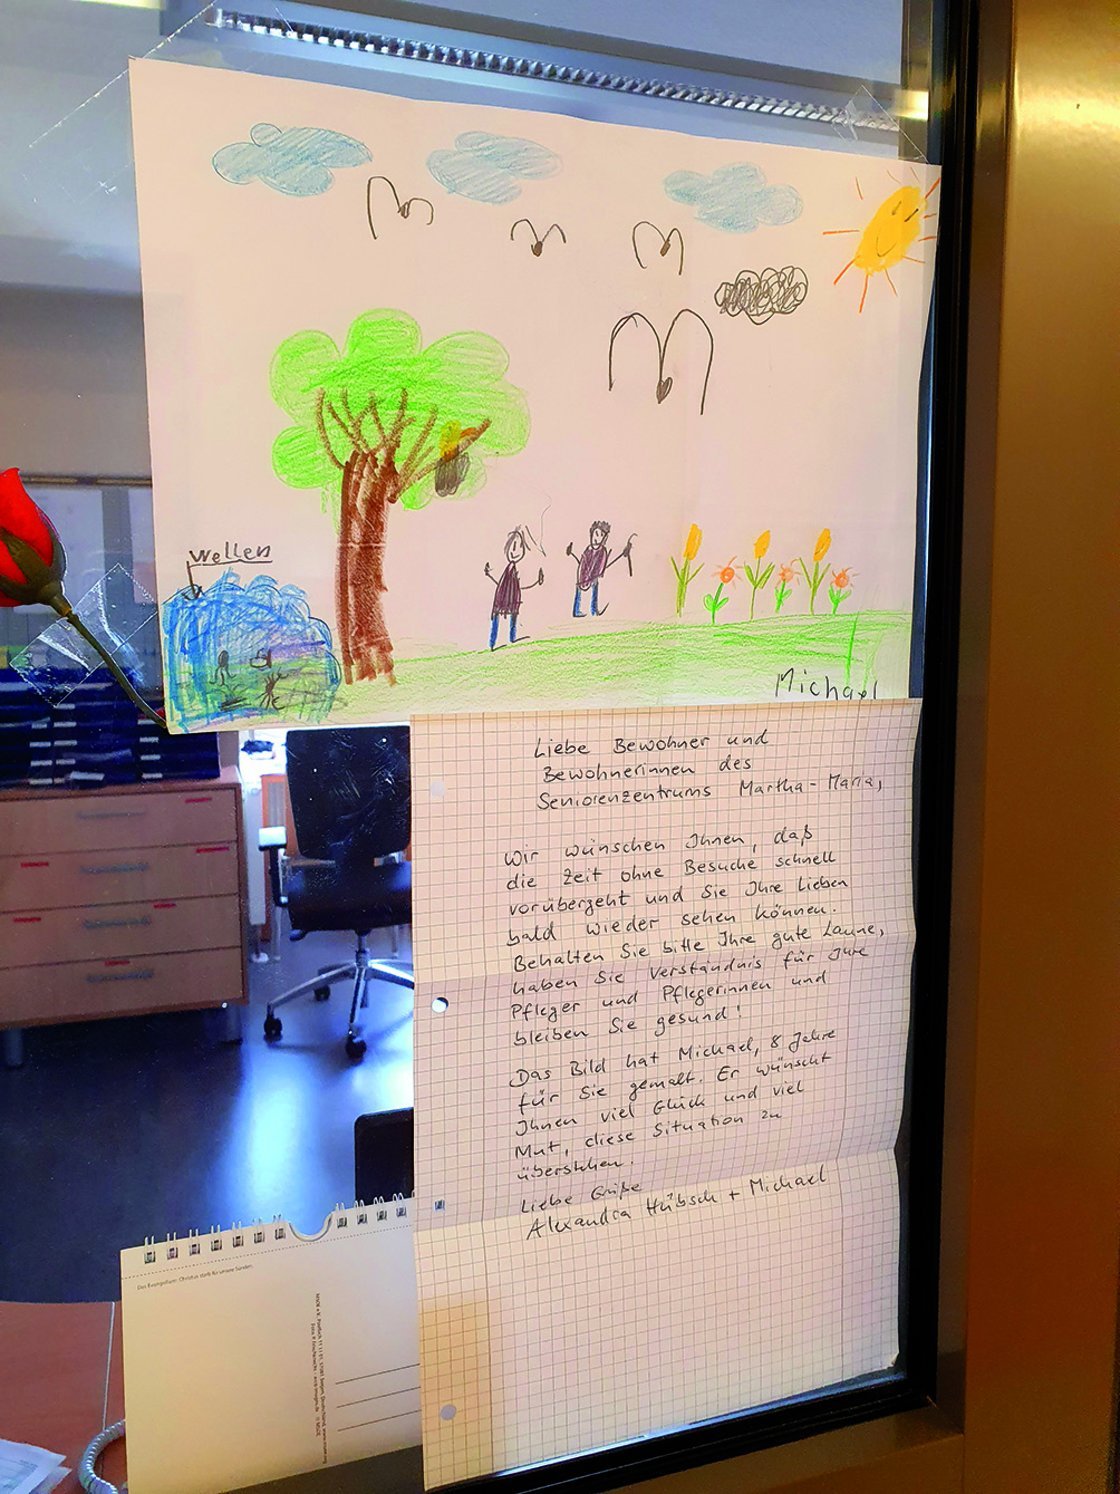 Wellen
Michael
Liebe Bewohner und
Bewohnerinnen des
Seniorenzentrums Martha-Maria,
Wir wünschen Ihnen, daß
die Zeit ohne Besuche schnell
vorübergeht und Sie Ihre Lieben
bald wieder sehen können.
Behalten Sie bitte Ihre gute Laune,
haben Sie Verständnis für Ihre
Pfleger und Pflegerinnen und
bleiben Sie gesund!
Das Bild hat Michael, 8 Jahre
für Sie gemalt. Er wünscht
Ihnen viel Glück und viel
Mut, diese Situation zu
überstehen.
Liebe Grüße
Alexandra Hübsch + Michael
Das Evangelium: Christus starb für unsere Sünden.